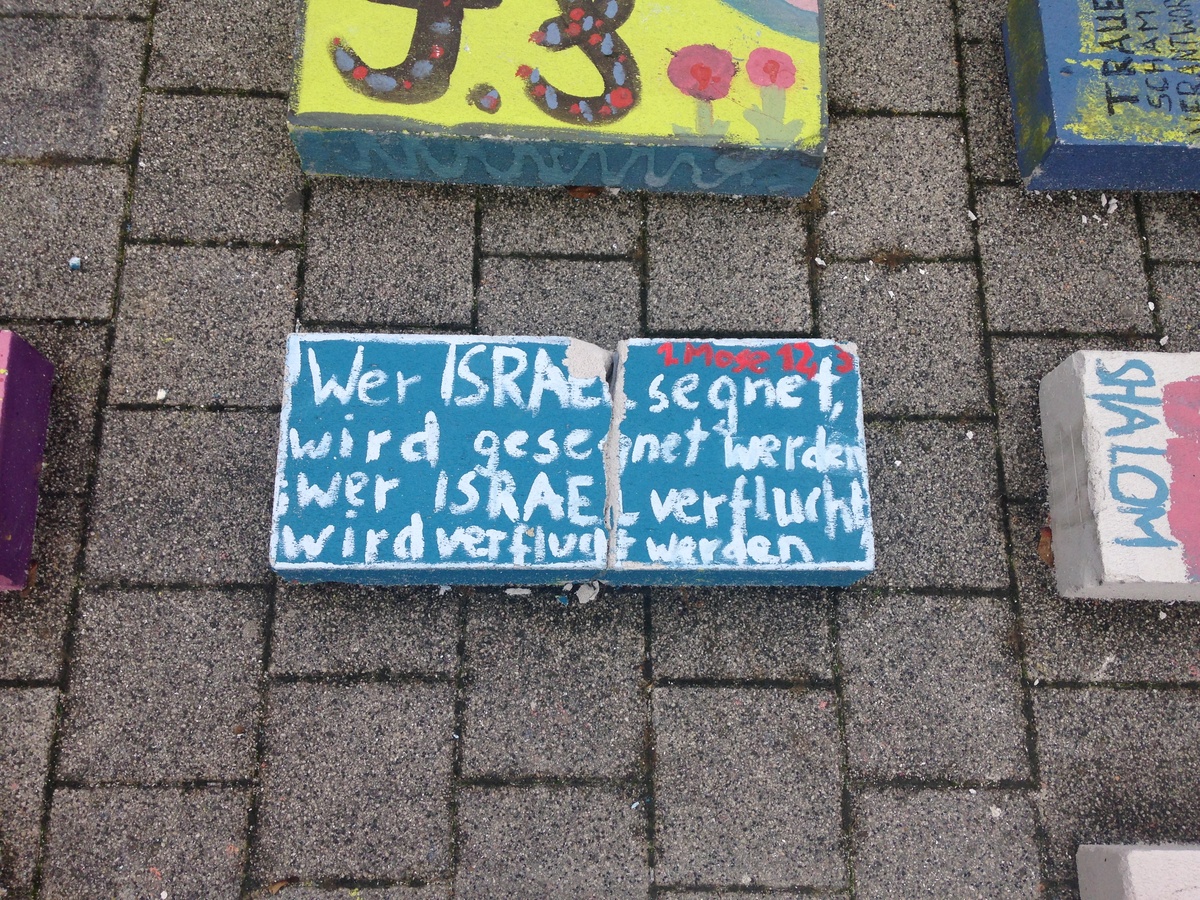 7.3
TRAUE
SCHAM
VERANTWOR
1. Mose 12,3
Wer ISRAEL segnet,
wird gesegnet werden
wer ISRAEL verflucht
wird verflucht werden
SHALOM